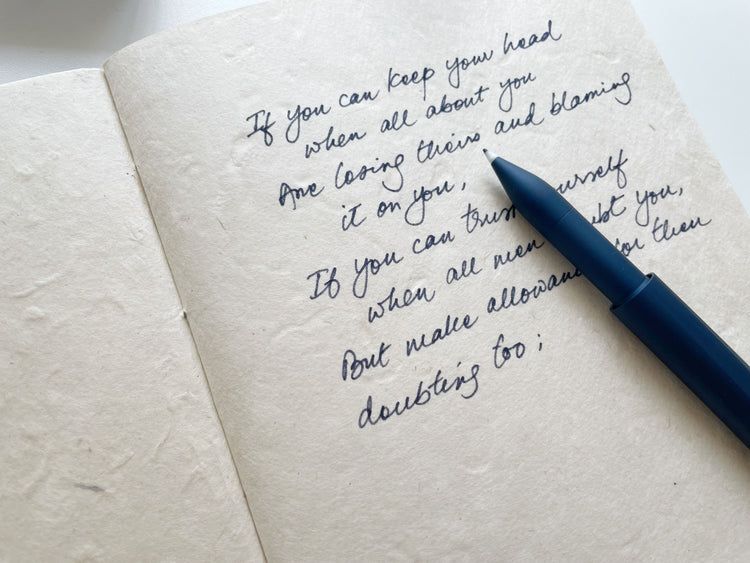 If you can keep your head
when all about you
Are losing theirs and blaming
it on you,
If you can trust yourself
when all men doubt you,
But make allowance for their
doubting too;